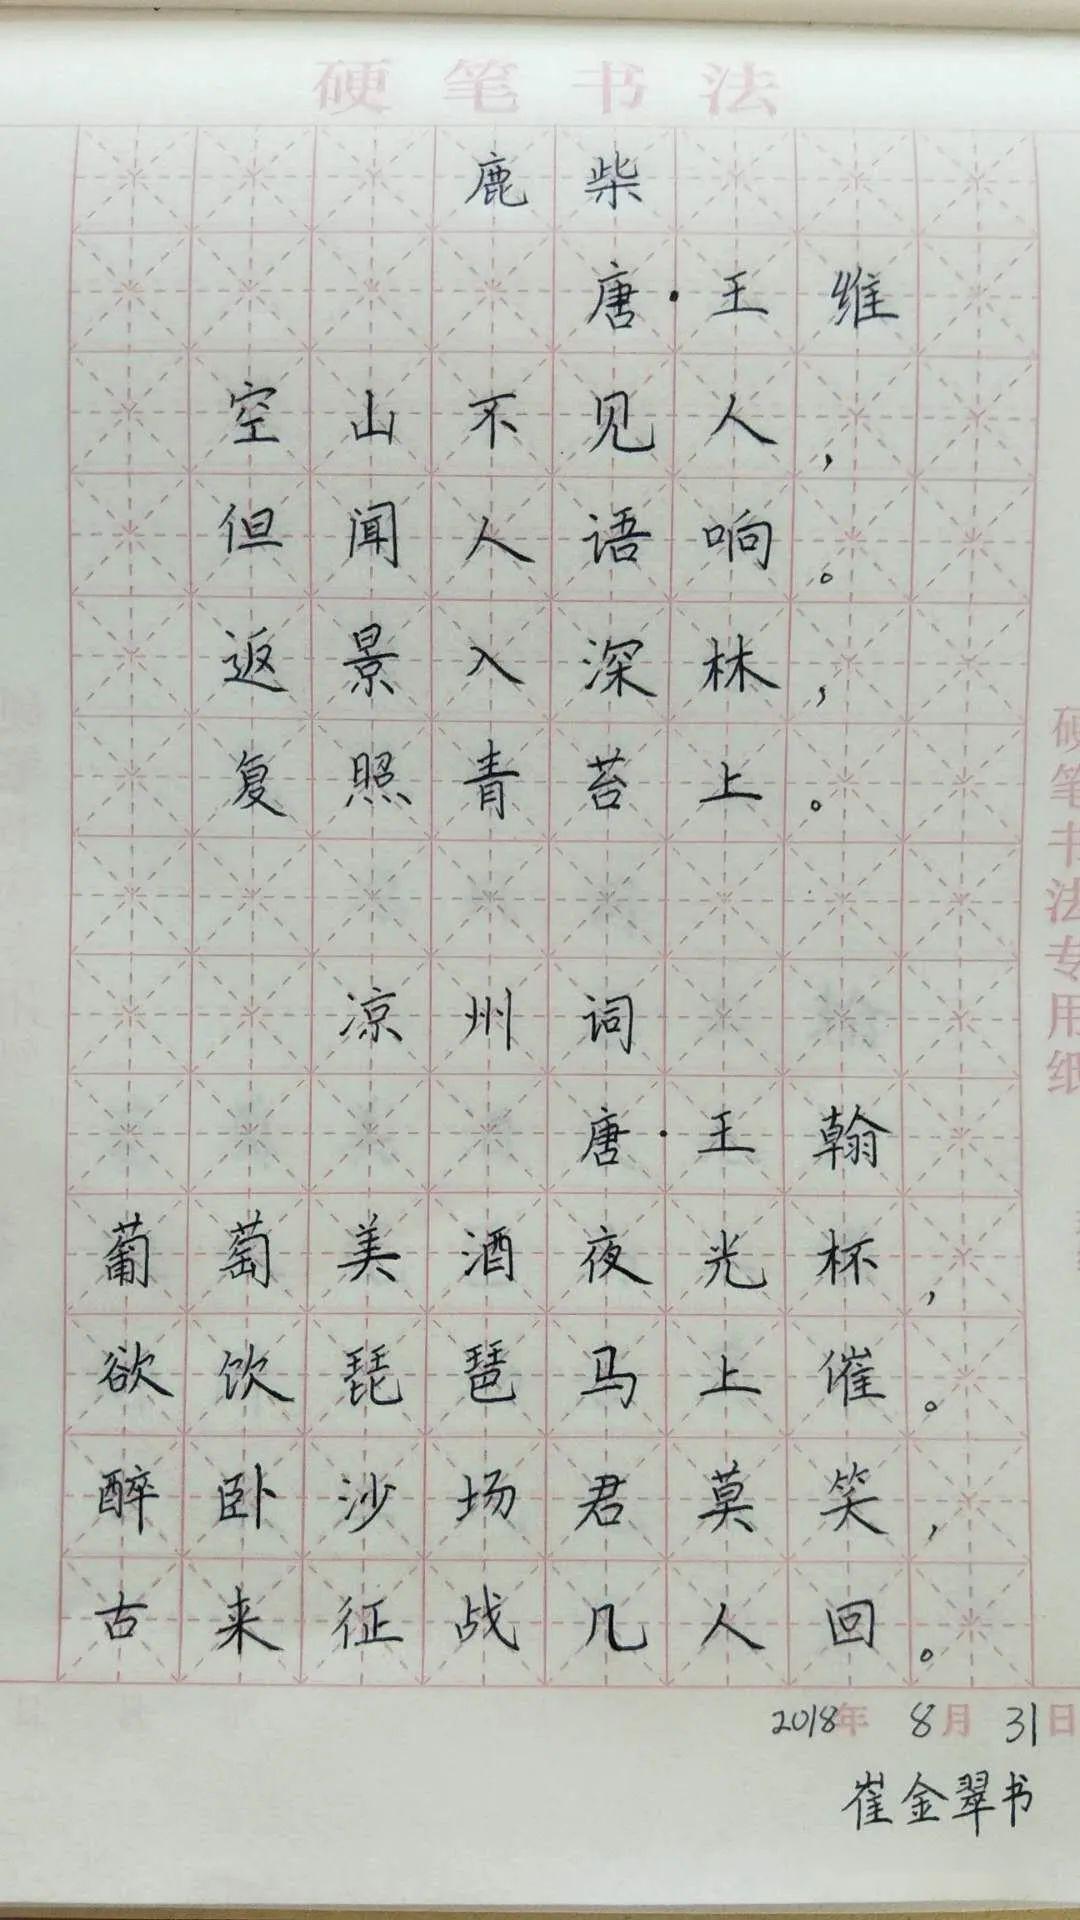 硬笔书法
鹿柴
唐·王维
空山不见人，
但闻人语响。
返景入深林，
复照青苔上。
凉州词
唐·王翰
葡萄美酒夜光杯，
欲饮琵琶马上催。
醉卧沙场君莫笑，
古来征战几人回。
2018年 8月 31日
崔金翠书
硬笔书法专用纸